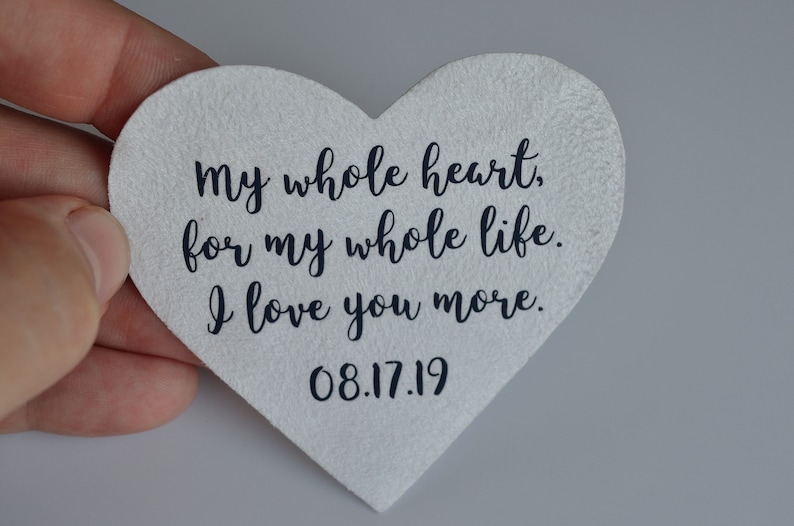 My whole heart,
for my whole life.
I love you more.
08.17.19